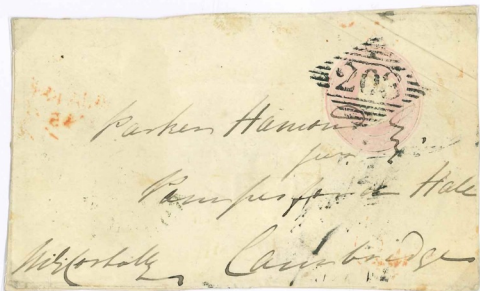 203
Parker Hamond
jun
Pampisford Hall
Cambridge